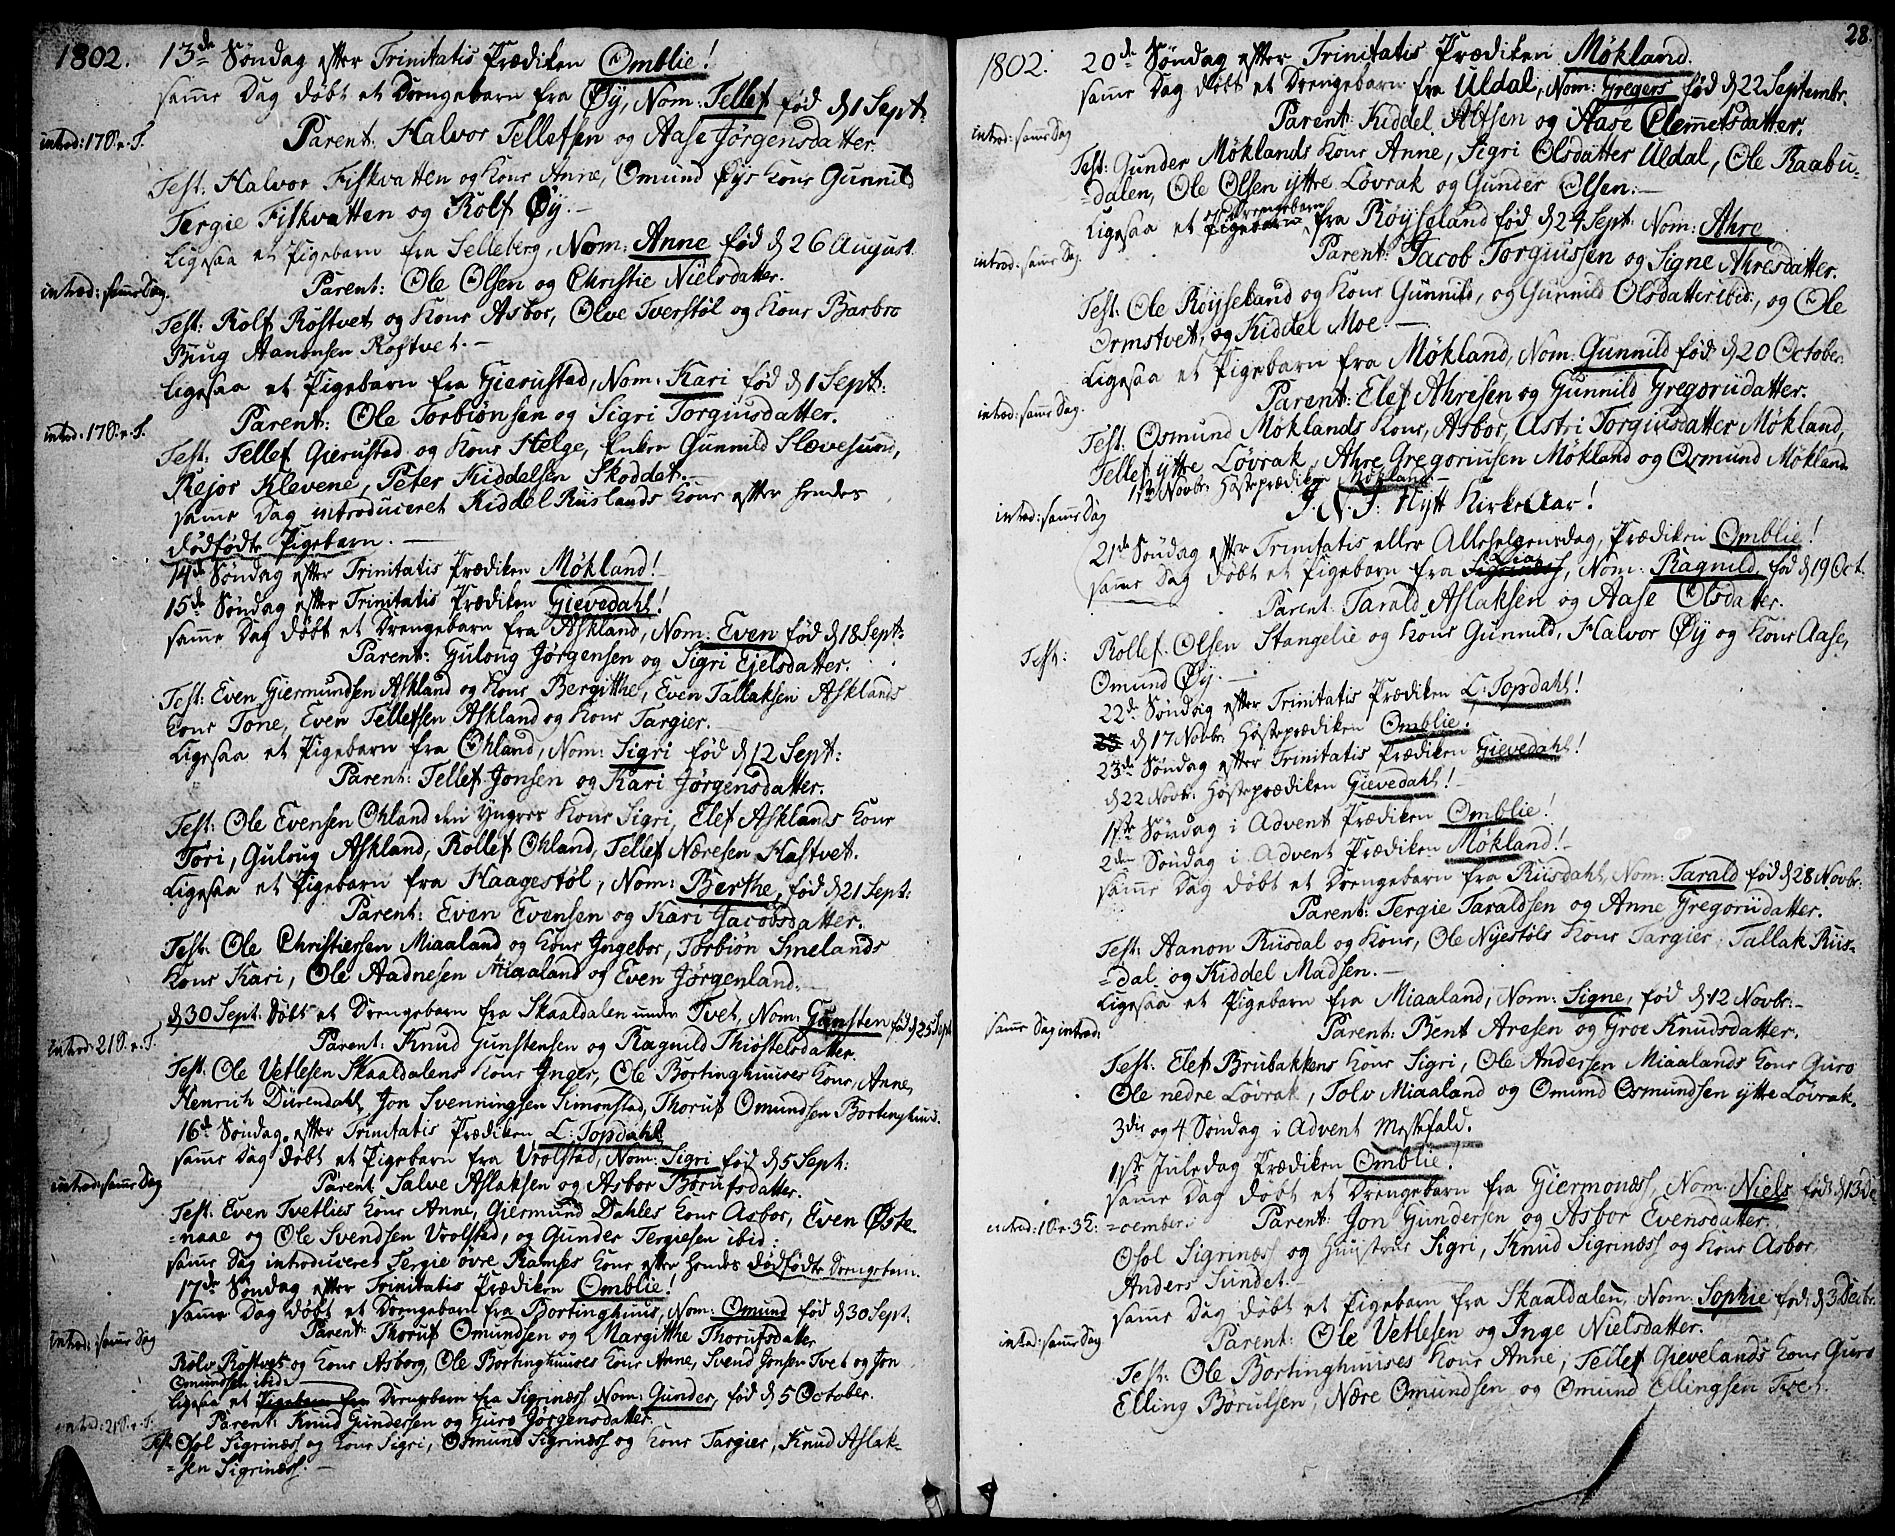 1802. 13de Søndag efter Trinitatis Prædiken Omblie!
samme Dag døbt et Drengebarn fra Øy, Nom: Tellef fød d 1 Sept:
introd: 17 S. e. T.
Parent: Halvor Tellefsen og Aase Jørgensdatter.
Test: Halvor Fiskvatten og Kone Anne, Omund Øys Kone Gunnild
Tergie Fiskvatten og Rolf Øy.-
Ligesaa et Pigebarn fra Selleberg, Nom: Anne fød d 26 August
introd: samme Dag.
Parent: Ole Olsen og Christie Nielsdatter.
Test: Rolf Rostvet og Kone Asbor, Olve Tverstøl og Kone Barbro
Biug Aanonsen Rostvet.-
Ligesaa et Pigebarn fra Gierustad, Nom: Kari fød d 1 Sept:
introd: 17 S. e. T.
Parent: Ole Torbiønsen og Sigri Torgiusdatter.
Test: Tellef Gierustad og Kone Helge, Enken Gunnild Slævesund,
Rejor Klevene, Peter Kiddelsen Skoddet.
samme Dag introduceret Kiddel Ruslands Kone efter hendes
dødfødte Pigebarn.-
14de Søndag efter Trinitatis Prædiken Møkland!
15de Søndag efter Trinitatis Prædiken Gievedahl!
samme Dag døbt et Drengebarn fra Askland, Nom: Even fød d 18 Sept:
Parent: Guloug Jørgensen og Sigri Ejelsdatter.
Test: Even Giermundsen Askland og Kone Bergitthe, Even Tallaksen Asklands
Kone Tone, Even Tellefsen Askland og Kone Targier.
Ligesaa et Pigebarn fra Ohland, Nom: Sigri fød d 12 Sept:
Parent: Tellef Jonsen og Kari Jørgensdatter.
Test: Ole Evensen Ohland den Yngres Kone Sigri, Elef Asklands Kone
Tori, Guloug Askland, Rollef Ohland, Tellef Næresen Hastvet.
Ligesaa et Pigebarn fra Haagestøl, Nom: Berthe, fød d 21 Sept:
Parent: Even Evensen og Kari Jacobsdatter.
Test: Ole Christiersen Miaaland og Kone Ingebor, Torbiøn Smelands
Kone Kari, Ole Aadnesen Miaaland og Even Jørgenland.
d 30 Sept: døbt et Drengebarn fra Skaaldalen under Tvet, Nom: Gunsten fød d 25 Sept
introd: 21 S. e. T.
Parent: Knud Gunstensen og Ragnild Thiøstelsdatter.
Test: Ole Vetlesen Skaaldalens Kone Inger, Ole Bortinghuuses Kone, Anne,
Henrich Dürendahl, Jon Svenningsen Simonstad, Thoruf Omundsen Bortinghuus.
16de Søndag efter Trinitatis Prædiken L: Topdahl
samme Dag døbt et Pigebarn fra Vrolstad, Nom: Sigri fød d 5 Sept:
introd: samme Dag
Parent: Salve Aslaksen og Asbor Børufsdatter.
Test: Even Tvetlies Kone Anne, Giermund Dahles Kone Asbor, Even Øste
=naae og Ole Svendsen Vrolstad, og Gunder Tergiesen ibid:
samme Dag introduceret Tergie øvre Ramses Kone efter hendes dødfødte Drengebarn.
17de Søndag efter Trinitatis Prædiken Omblie!
samme Dag døbt et Drengebarn fra Bortinghuus, Nom: Omund fød d 30 Sept:
introd: samme Dag
Parent: Thoruf Omundsen og Margitthe Thorufsdatter
Rolv Rostvet og Kone Asborg, Ole Bortinghuuses Kone Anne, Svend Jonsen Tvet og Jon
Omundsen ibid:
Ligesaa et Pigebarn fra Drengebarn fra Sigrinæss Nom: Gunder, fød d 5 October.
introd: 21 S. e. T.
Parent: Knud Gundersen og Guro Jørgensdatter.
Test: Osol Sigrinæss og Kone Sigri, Osmund Sigrinæss og Kone Targier, Knud Aslak-
=sen Sigrinæss.-
28.
1802. 20de Søndag efter Trinitatis Prædiken Møkland.
samme Dag døbt et Drengebarn fra Uldal, Nom: Gregers fød d 22 Septembr.
introd: samme Dag
Parent: Kiddel Alfsen og Aase Clemetsdatter.
Test: Gunder Møklands Kone Anne, Sigri Olsdatter Uldal, Ole Raabu-
=dalen, Ole Olsen yttre Løvrak og Gunder Olsen.-
Ligesaa et Pigebarn Drengebarn fra Røyseland fød d 24 Sept: Nom: Ahre
introd: samme Dag.
Parent: Jacob Torgiussen og Signe Ahresdatter.
Test: Ole Røyseland og Kone Gunnild, og Gunnild Olsdatter ibid:, og Ole
Ormstvet, og Kiddel Moe.-
Ligesaa et Pigebarn fra Møkland, Nom: Gunnild fød d 20 October.
introd: samme Dag.
Parent: Elef Ahresen og Gunnild Gregoriidatter.
Test: Osmund Møklands Kone, Asbor, Astri Torgiusdatter Møkland,
Tellef yttre Løvrak, Ahre Gregoriusen Møkland og Osmund Møkland.
1ste Novbr: Høsteprædiken Møkland.-
J. N. J. Nytt Kirke Aar!
introd: samme Dag
21de Søndag efter Trinitatis eller Allehelgensdag, Prædiken Omblie!
samme Dag døbt et Pigebarn fra, Nom: Ragnild fød d 19 Oct.
Parent: Tarald Aslaksen og Aase Olsdatter.
Test: Rollef Olsen Stangelie og Kone Gunnild, Halvor Øy og Kone Aase,
Omund Øy.-
22de Søndag efter Trinitatis Prædiken L: Topdahl!
d 17 Novbr: Høsteprædiken Omblie!
23de Søndag efter Trinitatis Prædiken Gievedahl!
d 22 Novbr: Høsteprædiken Gievedahl!-
1ste Søndag i Advent Prædiken Omblie!
2den Søndag i Advent Prædiken Møkland!-
samme Dag døbt et Drengebarn fra Riisdahl, Nom: Tarald fød d 28 Novbr:
Parent: Tergie Taraldsen og Anne Gregoriidatter.
Test: Aanon Riisdal og Kone, Ole Nyestøls Kone Targier, Tallak Riis-
=dal og Kiddel Madsen.-
Ligesaa et Pigebarn fra Miaaland, Nom: Signe, fød d 12 Novbr:-
samme Dag introd:
Parent: Bent Aresen og Groe Knudsdatter.
Test: Elef Brubakkens Kone Sigri, Ole Andersen Miaalands Kone Guro
Ole nedre Løvrak, Tolv Miaaland og Omund Osmundsen yttre Løvrak.
3die og 4 Søndag i Advent Messefald.
1ste Juledag Prædiken Omblie!
samme Dag døbt et Drengebarn fra Giermonæss, Nom: Niels fød d 13 De
=cember.
Parent: Jon Gundersen og Asbor Evensdatter.
Osol Sigrinæss og Huustrue Sigri, Knud Sigrinæss og Kone Asbor,
Anders Sundet.-
samme Dag døbt et Pigebarn fra Skaaldalen, Nom: Sophie fød: d 3 Decbr.
introd: samme Dag
Parent: Ole Vetlesen og Inge Nielsdatter.
Test: Ole Bortinghuuses Kone Anne, Tellef Gievelands Kone Guro
Elling Børulsen, Nære Omundsen og Omund Ellingsen Tvet.